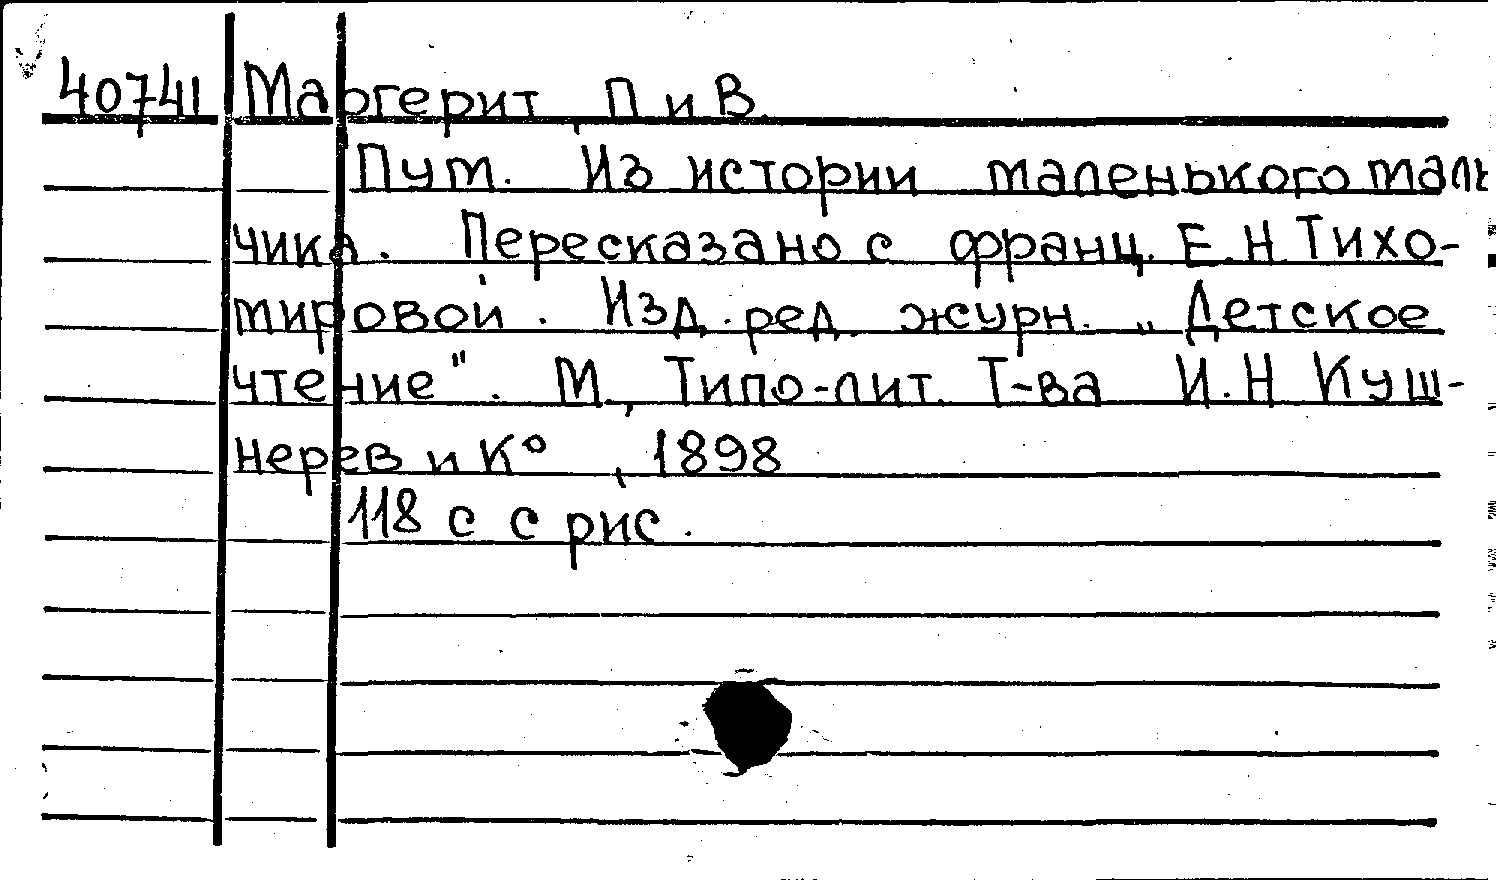 40741 Маргерит, П и В.
Пум. Из истории маленького маль
чика. Пересказано с франц. Е.Н Тихо-
мировой. Изд. ред. журн. „Детское
чтение". М., Типо-лит. Т-ва И.Н Куш-
нерев и К°, 1898
118 с с рис.